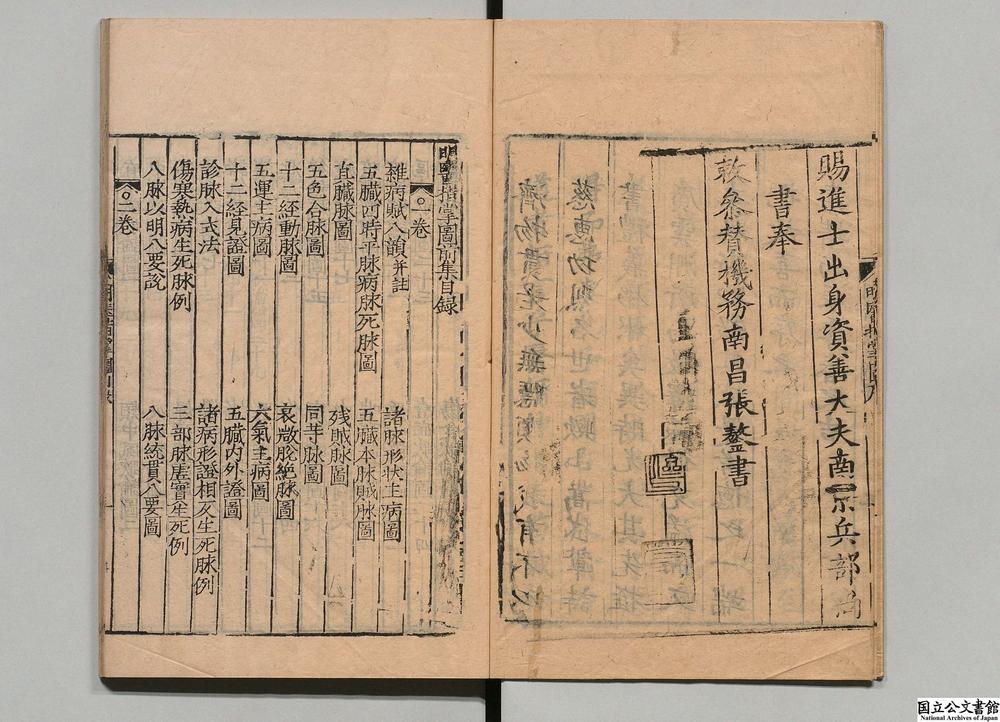 賜進士出身資善大夫南京兵部尚
書奉
敕參贊機務南昌張鏊書
明醫指掌圖前集目録
一卷
雜病賦八韻并註
諸脉形状主病圖
五臓四時平脉病脉死脉圖
五臓本脉賊脉圖
真臓脉圖
残賊脉圖
五色合脉圖
同等脉圖
十二經動脉圖
衰敗脫絶脉圖
五運主病圖
六氣主病圖
十二経見證圖
五臓内外證圖
診脉入式法
諸病形證相反生死脉例
傷寒熱病生死脉例
三部脉虛實生死例
八脉以明八要說
八脉統貫八要圖
二卷
国立公文書館
National Archives of Japan